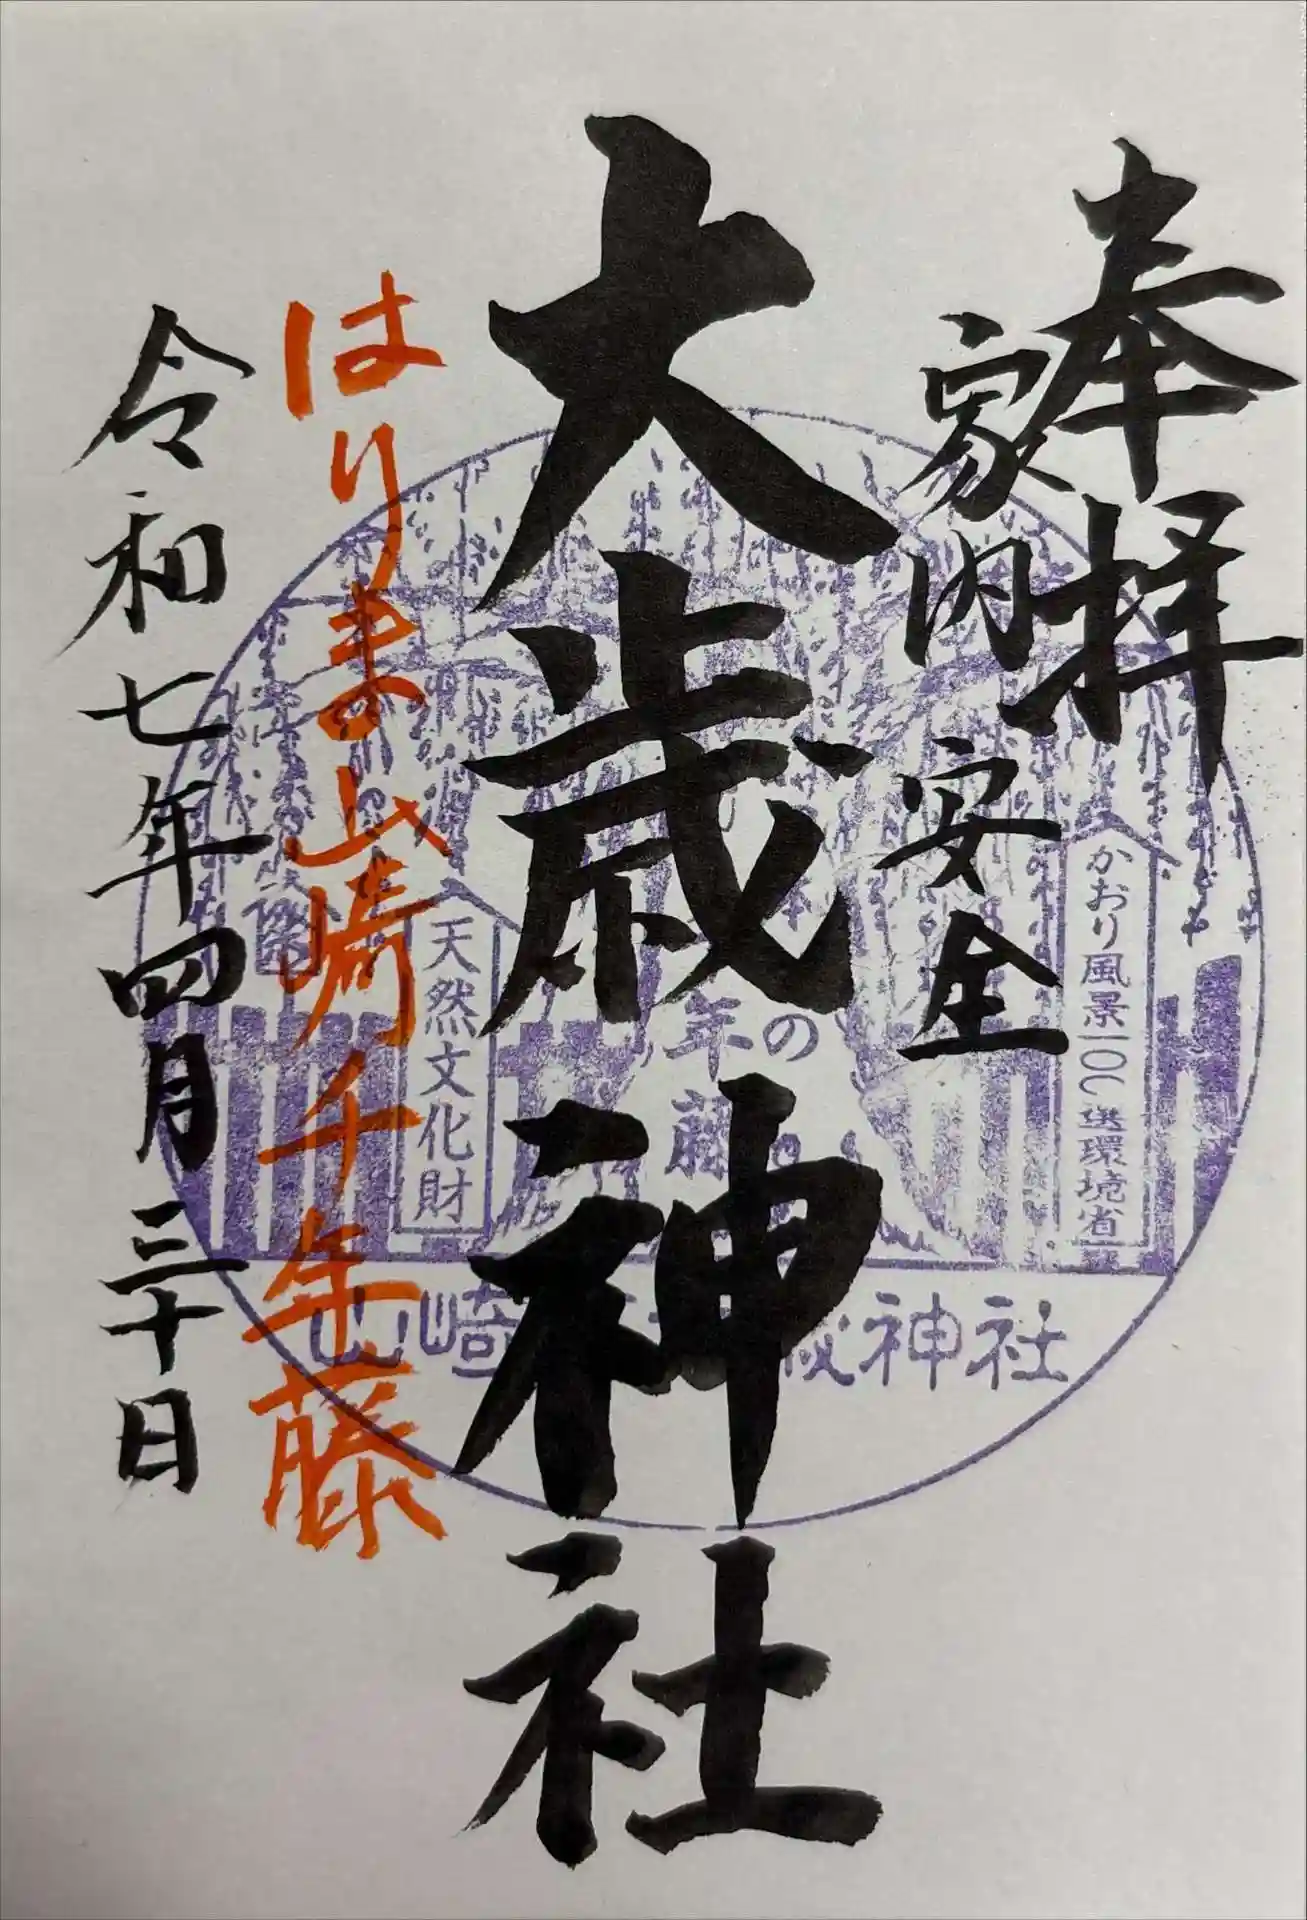 奉拝
家内安全
大歳神社
はりま山崎千年藤
令和七年四月三十日
かおり風景100選環境省
年の
藤
天然文化財
山崎
歳神社